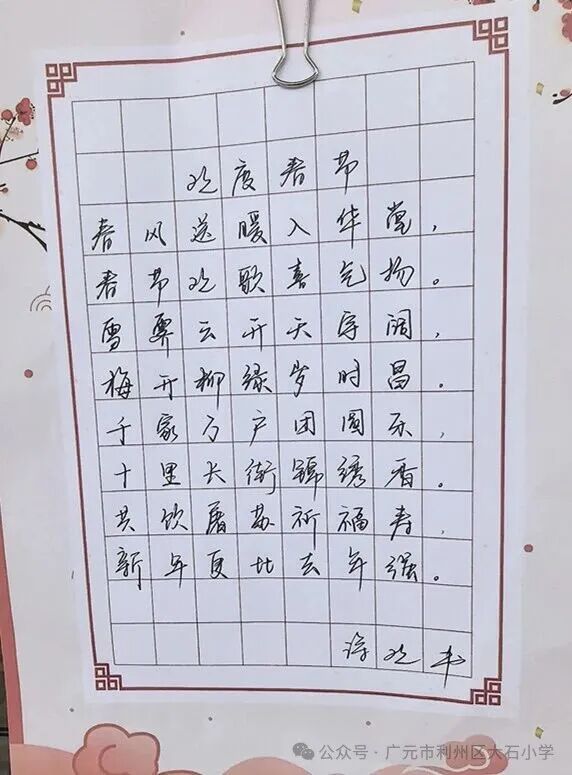 欢度春节
春风送暖入华堂，
春节欢歌喜气扬。
雪霁云开天宇阔，
梅开柳绿岁时昌。
千家万户团圆乐，
十里长街锦绣香。
共饮屠苏祈福寿，
新年更比去年强。
欢书
公众号·广元市利州区大石小学